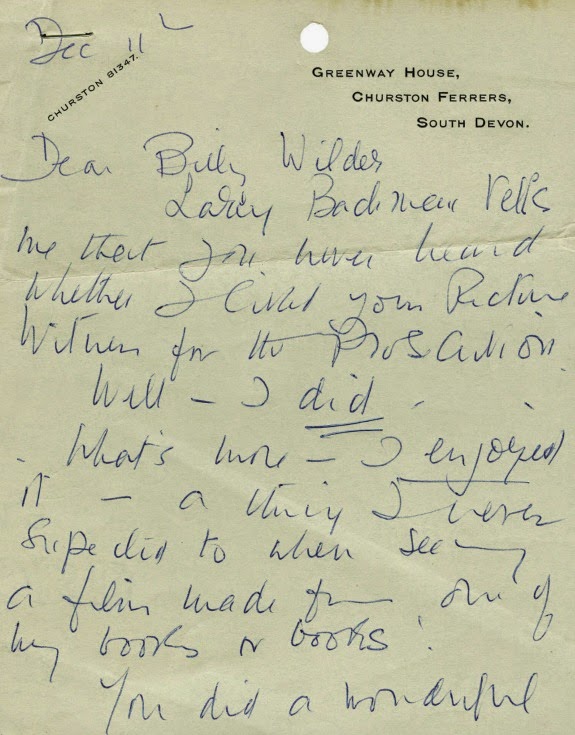 Dec 11
CHURSTON 81347.
GREENWAY HOUSE,
CHURSTON FERRERS,
SOUTH DEVON.
Dear Billy Wilder
Larry Bachman tells
me that you never heard
whether I liked your Picture
Witness for the Prosecution.
Well – I did.
What's more – I enjoyed
it – a thing I never
expected to when seeing
a film made from one of
my books or books!
You did a wonderful